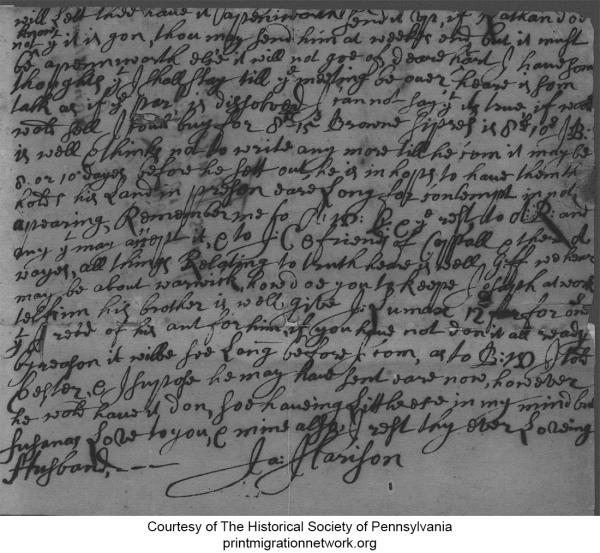 will sell thee have it a peniworth send it up, if Nathan doe
not
know if it is gon, thou may send him at weekes end but it must
be a peniworth else it will not goe of, deare hart I have som
thoughts I shall stay till ye meeting be over heare is som
talk as if ye par: is dissolved I can not say yt is true, if wool
wold sell I could buy for 8s Browne is 8s
is well & thinks not to write any more till he com it may be
8 or 10 dayes before he sett out, he is in hopes to have them
his Land in preson eare Long for contempt in not
apearing, Remember me to & ye rest to and
any yt may axcept it, & to J: C & friends of & other
wayes, all things Relating to truth heare is well, if we hear
may be about warwick, how doe you keepe Joseph at work
tell him his brother is well, give J: Lumax for one
yt of his ant for him, if you have not don it all ready
by reason it wilbe soe Long before I com, as to B: W I
& I supose he may have sent eare now, however
he wold have it don, soe haveing Little else in my mind but
Susanas Love to you, & mine allsoe I rest thy ever Loveing
Husband, Ja: Harison
Courtesy of The Historical Society of Pennsylvania
printmigrationnetwork.org